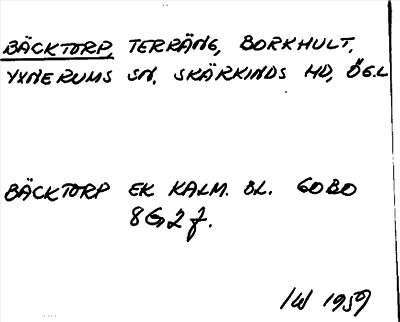 BÄCKTORP, TERRÄNG, BORKHULT,
YXNERUMS SN, SKÄRKINDS HD, ÖG.L
BÄCKTORP EK. KALM. BL. 6080
8G2f.
IW 1959